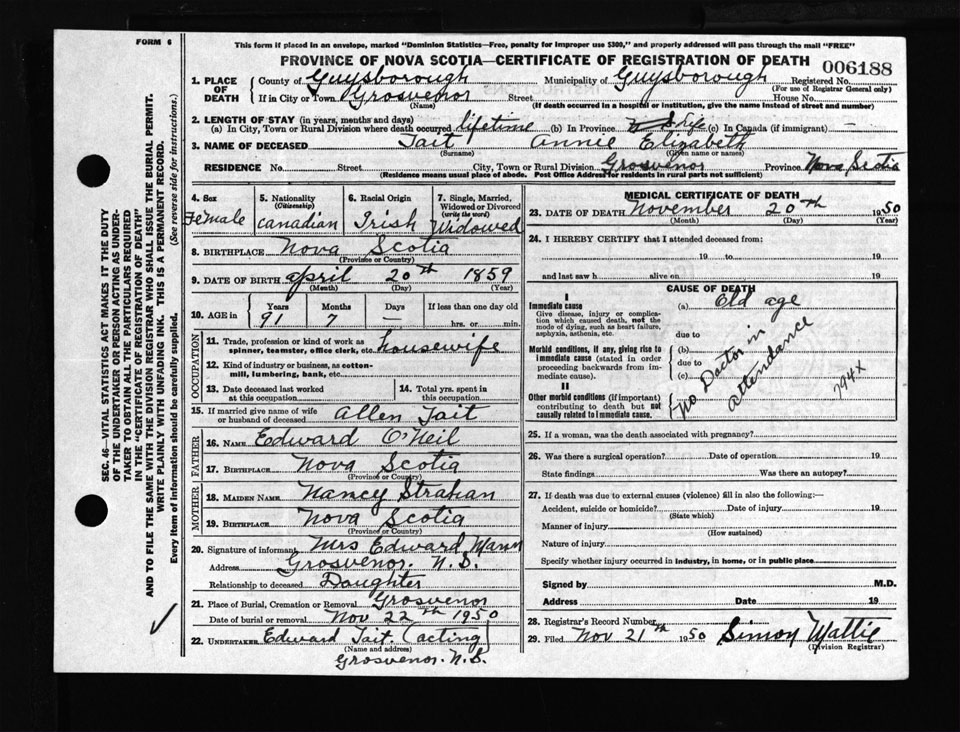 FORM 6
This form if placed in an envelope, marked "Dominion Statistics—Free, penalty for improper use $300," and properly addressed will pass through the mail "FREE"
PROVINCE OF NOVA SCOTIA—CERTIFICATE OF REGISTRATION OF DEATH
006188
1. PLACE OF DEATH
County of Guysborough Municipality of Guysborough Registered No.
(For use of Registrar General only)
If in City or Town Grosvenor Street House No.
(Name) (If death occurred in a hospital or institution, give the name instead of street and number)
2. LENGTH OF STAY (in years, months and days)
(a) In City, Town or Rural Division where death occurred lifetime (b) In Province Life (c) In Canada (if immigrant) —
3. NAME OF DECEASED Tait Annie Elizabeth
(Surname) (Given name or names)
RESIDENCE No. Street City, Town or Rural Division Grosvenor Province Nova Scotia
(Residence means usual place of abode. Post Office Address for residents in rural parts not sufficient)
4. Sex
Female
5. Nationality
(Citizenship)
Canadian
6. Racial Origin
Irish
7. Single, Married, Widowed or Divorced
(write the word)
Widowed
8. BIRTHPLACE Nova Scotia
(Province or Country)
9. DATE OF BIRTH April 20th 1859
(Month) (Day) (Year)
10. AGE in
Years Months Days If less than one day old
91 7 hrs. or min.
OCCUPATION
11. Trade, profession or kind of work as
spinner, teamster, office clerk, etc. housewife
12. Kind of industry or business, as cotton-
mill, lumbering, bank, etc.
13. Date deceased last worked
at this occupation
14. Total yrs. spent in
this occupation
15. If married give name of wife
or husband of deceased Allen Tait
FATHER
16. NAME Edward O'Neil
17. BIRTHPLACE Nova Scotia
MOTHER
18. MAIDEN NAME Nancy Strahan
19. BIRTHPLACE Nova Scotia
(Province or Country)
20. Signature of informant Mrs Edward Mann
Address Grosvenor. N.S.
Relationship to deceased Daughter
21. Place of Burial, Cremation or Removal Grosvenor
Date of burial or removal Nov 22th 1950
22. UNDERTAKER Edward Tait. (acting)
(Name and address)
Grosvenor. N.S.
MEDICAL CERTIFICATE OF DEATH
23. DATE OF DEATH November 20th 1950
(Month) (Day) (Year)
24. I HEREBY CERTIFY that I attended deceased from:
19 to 19
and last saw h alive on 19
CAUSE OF DEATH
I
Immediate cause (a) Old age
Give disease, injury or complica-
tion which caused death, not the
mode of dying, such as heart failure,
asphyxia, asthenia, etc.
due to
Morbid conditions, if any, giving rise to
immediate cause (stated in order
proceeding backwards from im-
mediate cause).
(b)
due to
(c)
II
Other morbid conditions (if important)
contributing to death but not
causally related to immediate cause.
No Doctor in
attendance
794X
25. If a woman, was the death associated with pregnancy?
26. Was there a surgical operation? Date of operation 19
State findings Was there an autopsy?
27. If death was due to external causes (violence) fill in also the following:—
Accident, suicide or homicide? Date of injury 19
(State which)
Manner of injury
(How sustained)
Nature of injury
Specify whether injury occurred in industry, in home, or in public place
Signed by M.D.
Address Date 19
28. Registrar's Record Number
29. Filed Nov 21th 1950 Simon Mattie
(Division Registrar)
SEC. 46—VITAL STATISTICS ACT MAKES IT THE DUTY
OF THE UNDERTAKER OR PERSON ACTING AS UNDER-
TAKER TO OBTAIN ALL THE PARTICULARS REQUIRED
IN THE "CERTIFICATE OF REGISTRATION OF DEATH"
AND TO FILE THE SAME WITH THE DIVISION REGISTRAR WHO SHALL ISSUE THE BURIAL PERMIT.
WRITE PLAINLY WITH UNFADING INK. THIS IS A PERMANENT RECORD.
Every item of information should be carefully supplied. (See reverse side for instructions.)